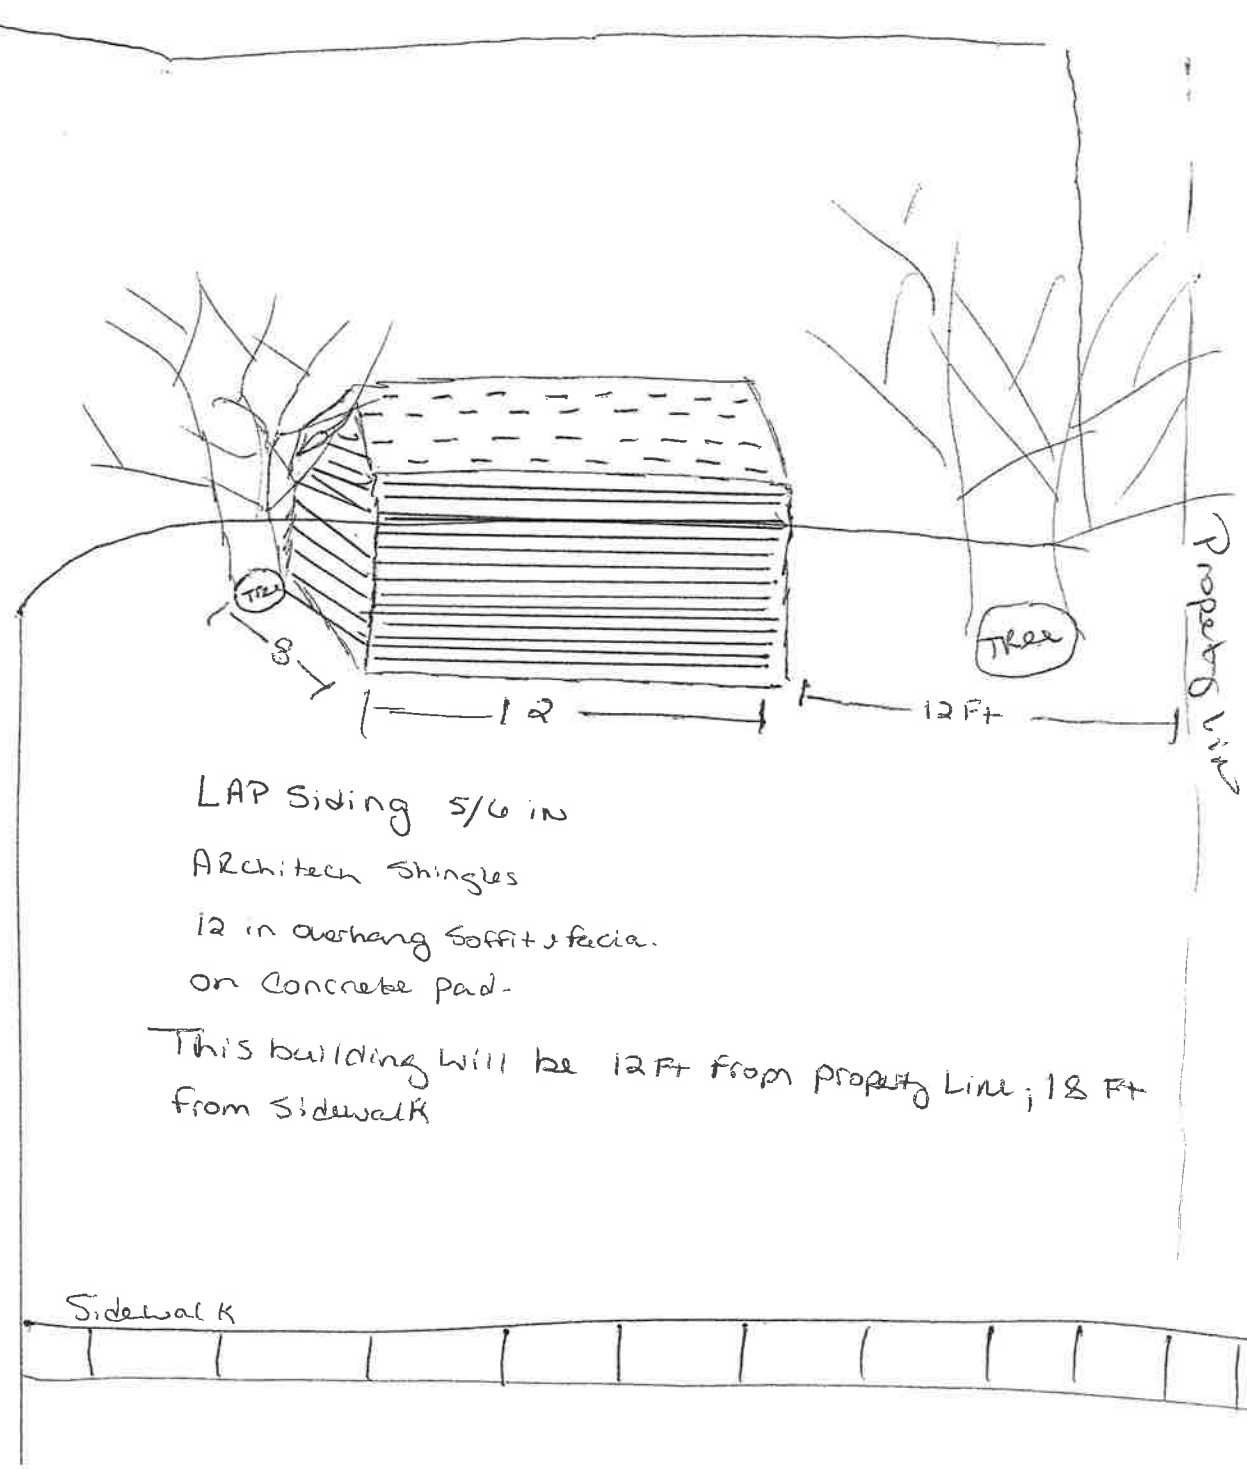 Tree
TRee
Property Line
8
12
12 Ft
LAP Siding 5/6 in
ARchitech Shingles
12 in overhang Soffit & facia.
on Concrete pad-
This building will be 12 Ft from property Line; 18 Ft
from Sidewalk
Sidewalk